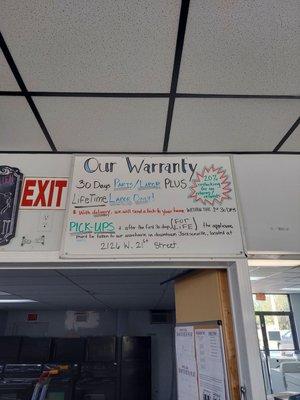 Our Warranty
30 Days Parts/Labor PLUS
LifeTime Labor Only!
20%
restocking fee
Within the 1st 30 DAYS
EXIT
* With delivery, we will send a tech to your home
PICK-UPS * after the first 30 Days (FOR LIFE) the appliance
must be taken to our warehouse in downtown Jacksonville, located at
2126 W. 21st Street.